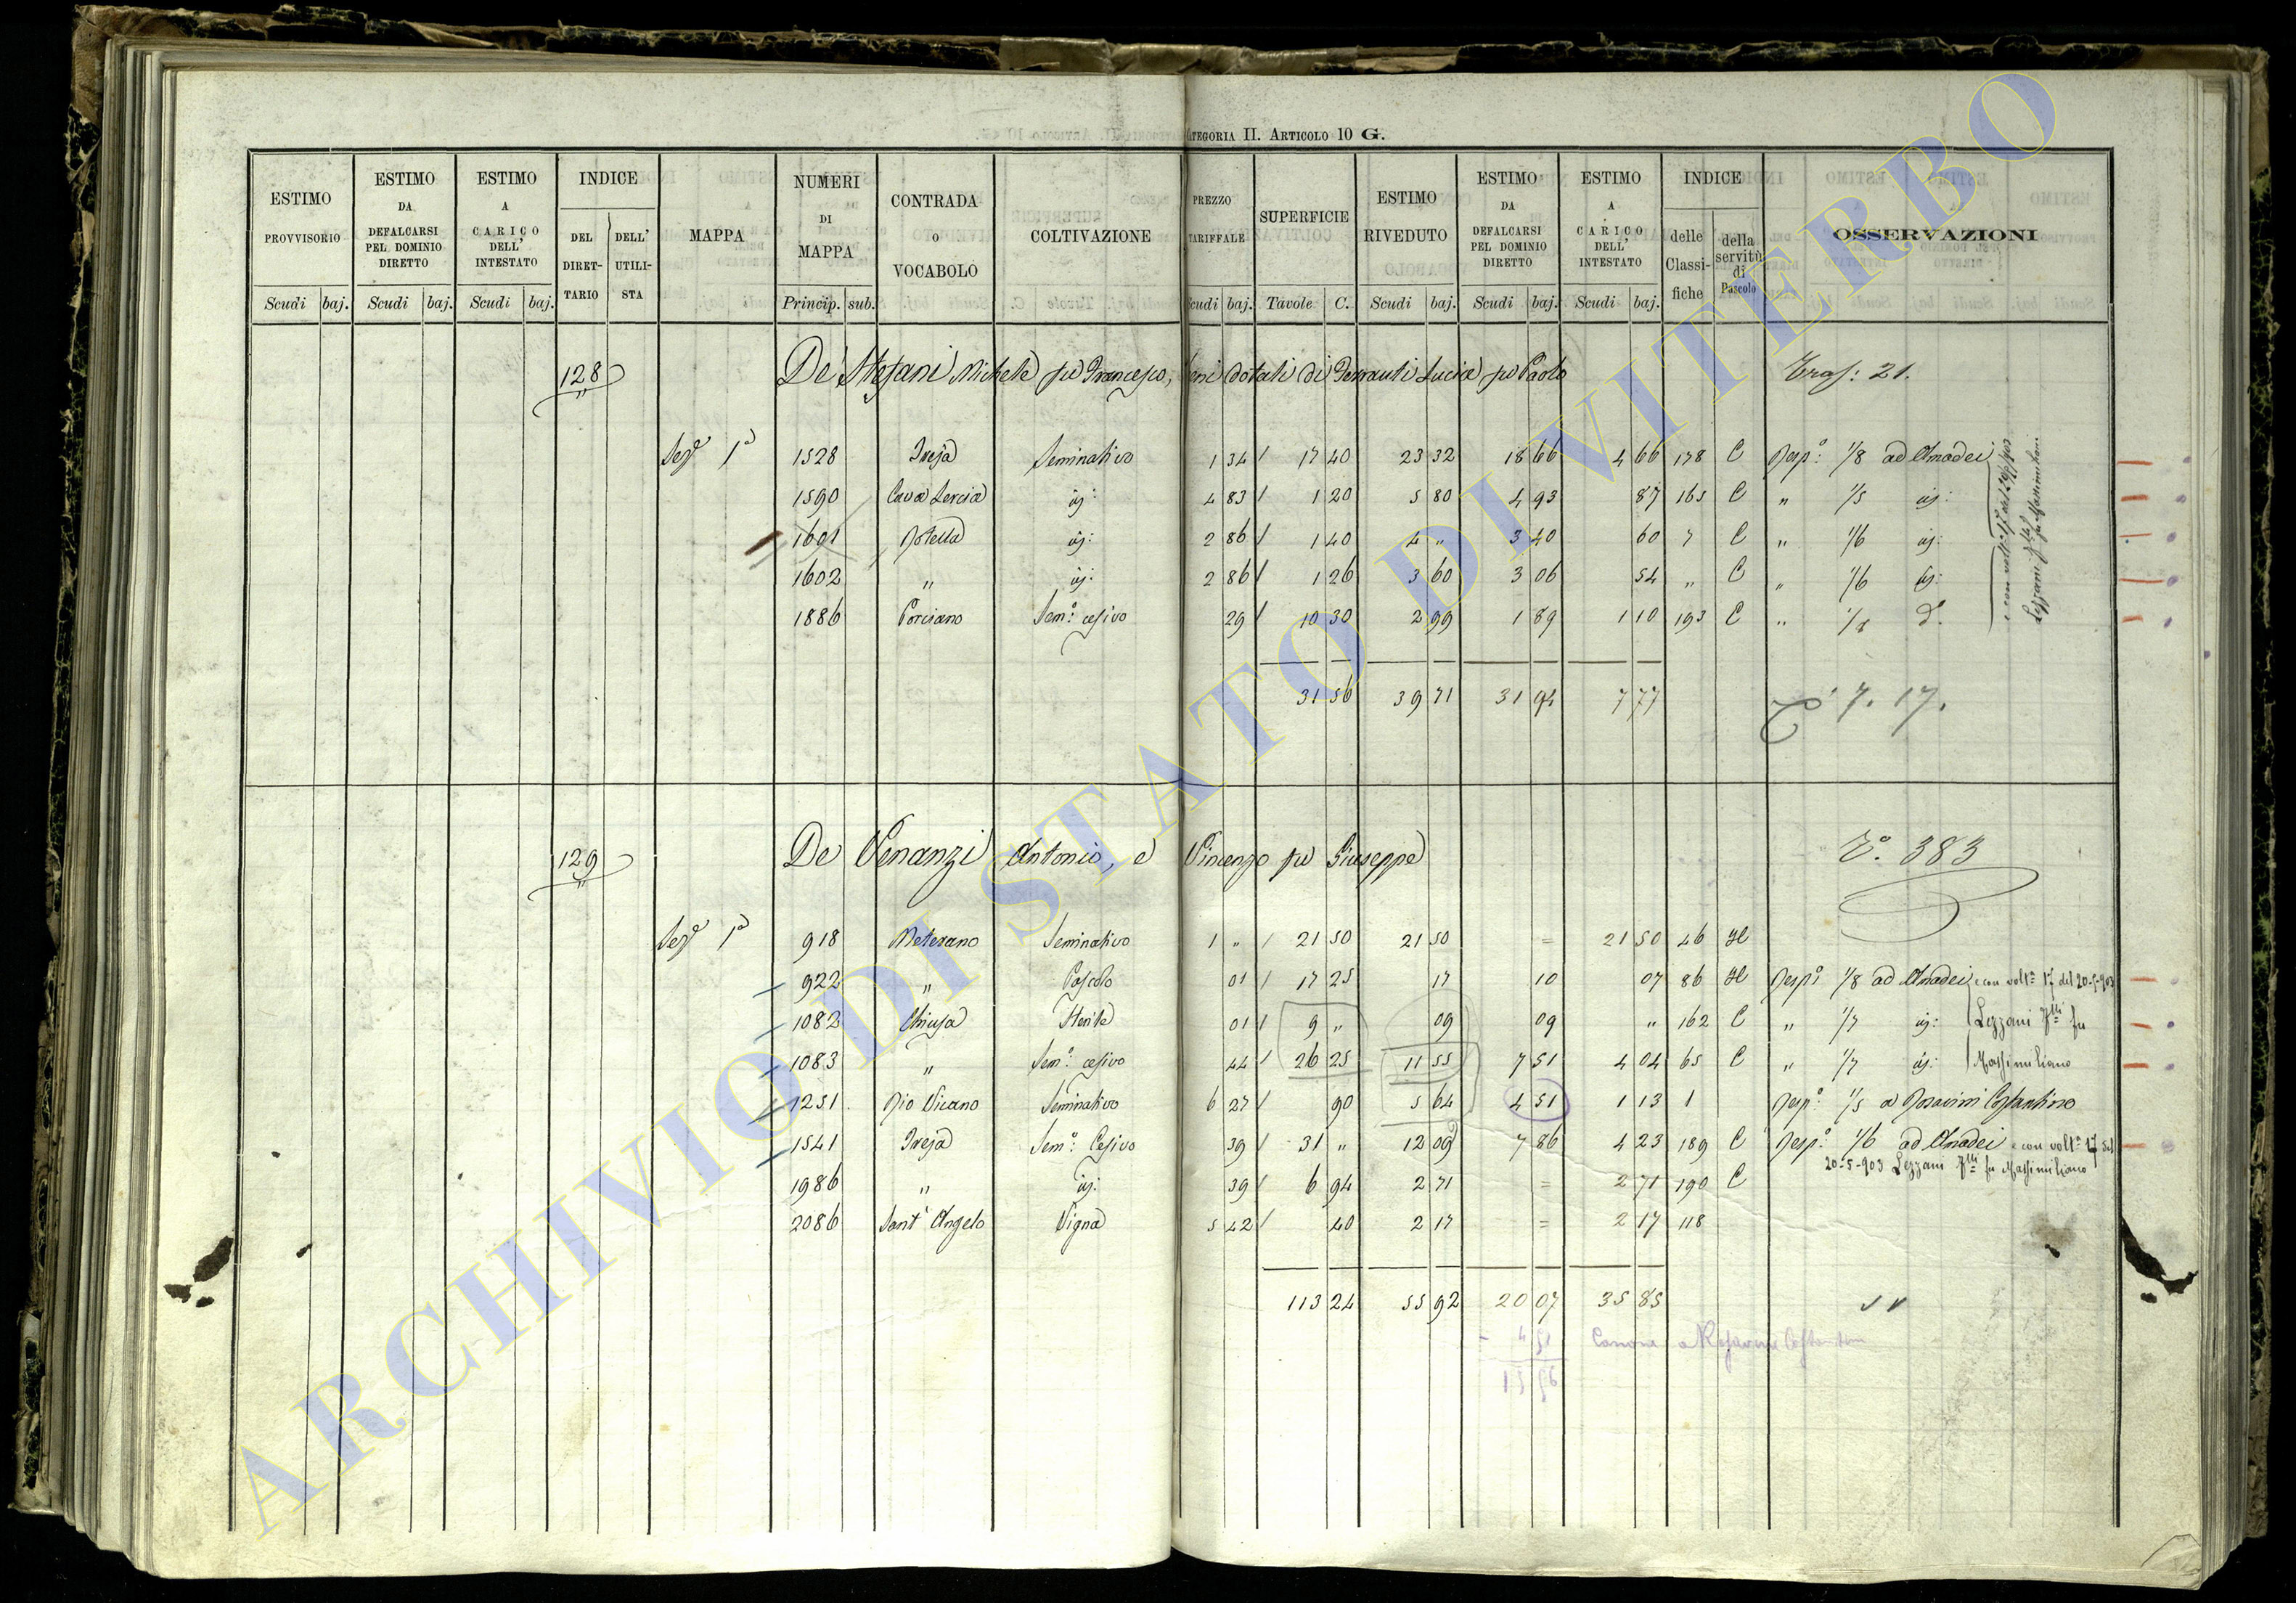 CATEGORIA II. ARTICOLO 10 G.
ESTIMO PROVVISORIO Scudi baj. ESTIMO DA DEFALCARSI PEL DOMINIO DIRETTO Scudi baj. ESTIMO A CARICO DELL' INTESTATO Scudi baj. INDICE DEL DIRET-TARIO DELL' UTILI-STA MAPPA NUMERI DI MAPPA Princip. sub. CONTRADA O VOCABOLO COLTIVAZIONE PREZZO TARIFFALE Scudi baj. SUPERFICIE Tavole C. ESTIMO RIVEDUTO Scudi baj. ESTIMO DA DEFALCARSI PEL DOMINIO DIRETTO Scudi baj. ESTIMO A CARICO DELL' INTESTATO Scudi baj. INDICE delle Classi-fiche della servitù di Pascolo OSSERVAZIONI
128 De Stefani Michele fu Francesco, beni dotali di Ferranti Lucia fu Paolo Tras: 21.
Sez.e 1a 1528 Ireja Seminativo 1 34 / 17 40 23 32 18 66 4 66 178 C Resp: 1/8 ad Amadei
1590 Cava Lercia id: 4 83 / 1 20 5 80 4 93 87 165 C " 1/5 id:
1601 Rotella id: 2 86 / 1 40 4 " 3 40 60 7 C " 1/6 id:
1602 " id: 2 86 / 1 26 3 60 3 06 54 " C " 1/6 id:
1886 Porciano Sem.o cesivo 29 / 10 30 2 99 1 89 1 10 193 C " 1/8 d.o
e con volt.a 17 del 20/5/903 Lezzani F.lli fu Massimiliano
31 56 39 71 31 94 7 77
7. 17.
129 De Venanzi Antonio, e Vincenzo fu Giuseppe V.o 383
Sez.e 1a 918 Meterano Seminativo 1 " / 21 50 21 50 = 21 50 46 H
922 " Pascolo 01 / 17 25 17 10 07 86 H Resp: 1/8 ad Amadei e con volt.a 17 del 20-5-903
1082 Chiusa Sterile 01 / 9 " 09 09 " 162 C " 1/7 id: Lezzani F.lli fu
1083 " Sem.o cesivo 44 / 26 25 11 55 7 51 4 04 65 C " 1/7 id: Massimiliano
1251 Rio Vicano Seminativo 6 27 / 90 5 64 4 51 1 13 1 Resp: 1/5 a Rosavini Costantino
1541 Ireja Sem.o Cesivo 39 / 31 " 12 09 7 86 4 23 189 C Resp: 1/6 ad Amadei e con volt.a 17 del
20-5-903 Lezzani F.lli fu Massimiliano
1986 " id: 39 / 6 94 2 71 = 2 71 190 C
2086 Sant' Angelo Vigna 5 42 / 40 2 17 = 2 17 118
113 24 55 92 20 07 35 85
- 4 51 Canone a Rosavini Costantino
15 56
ARCHIVIO DI STATO DI VITERBO